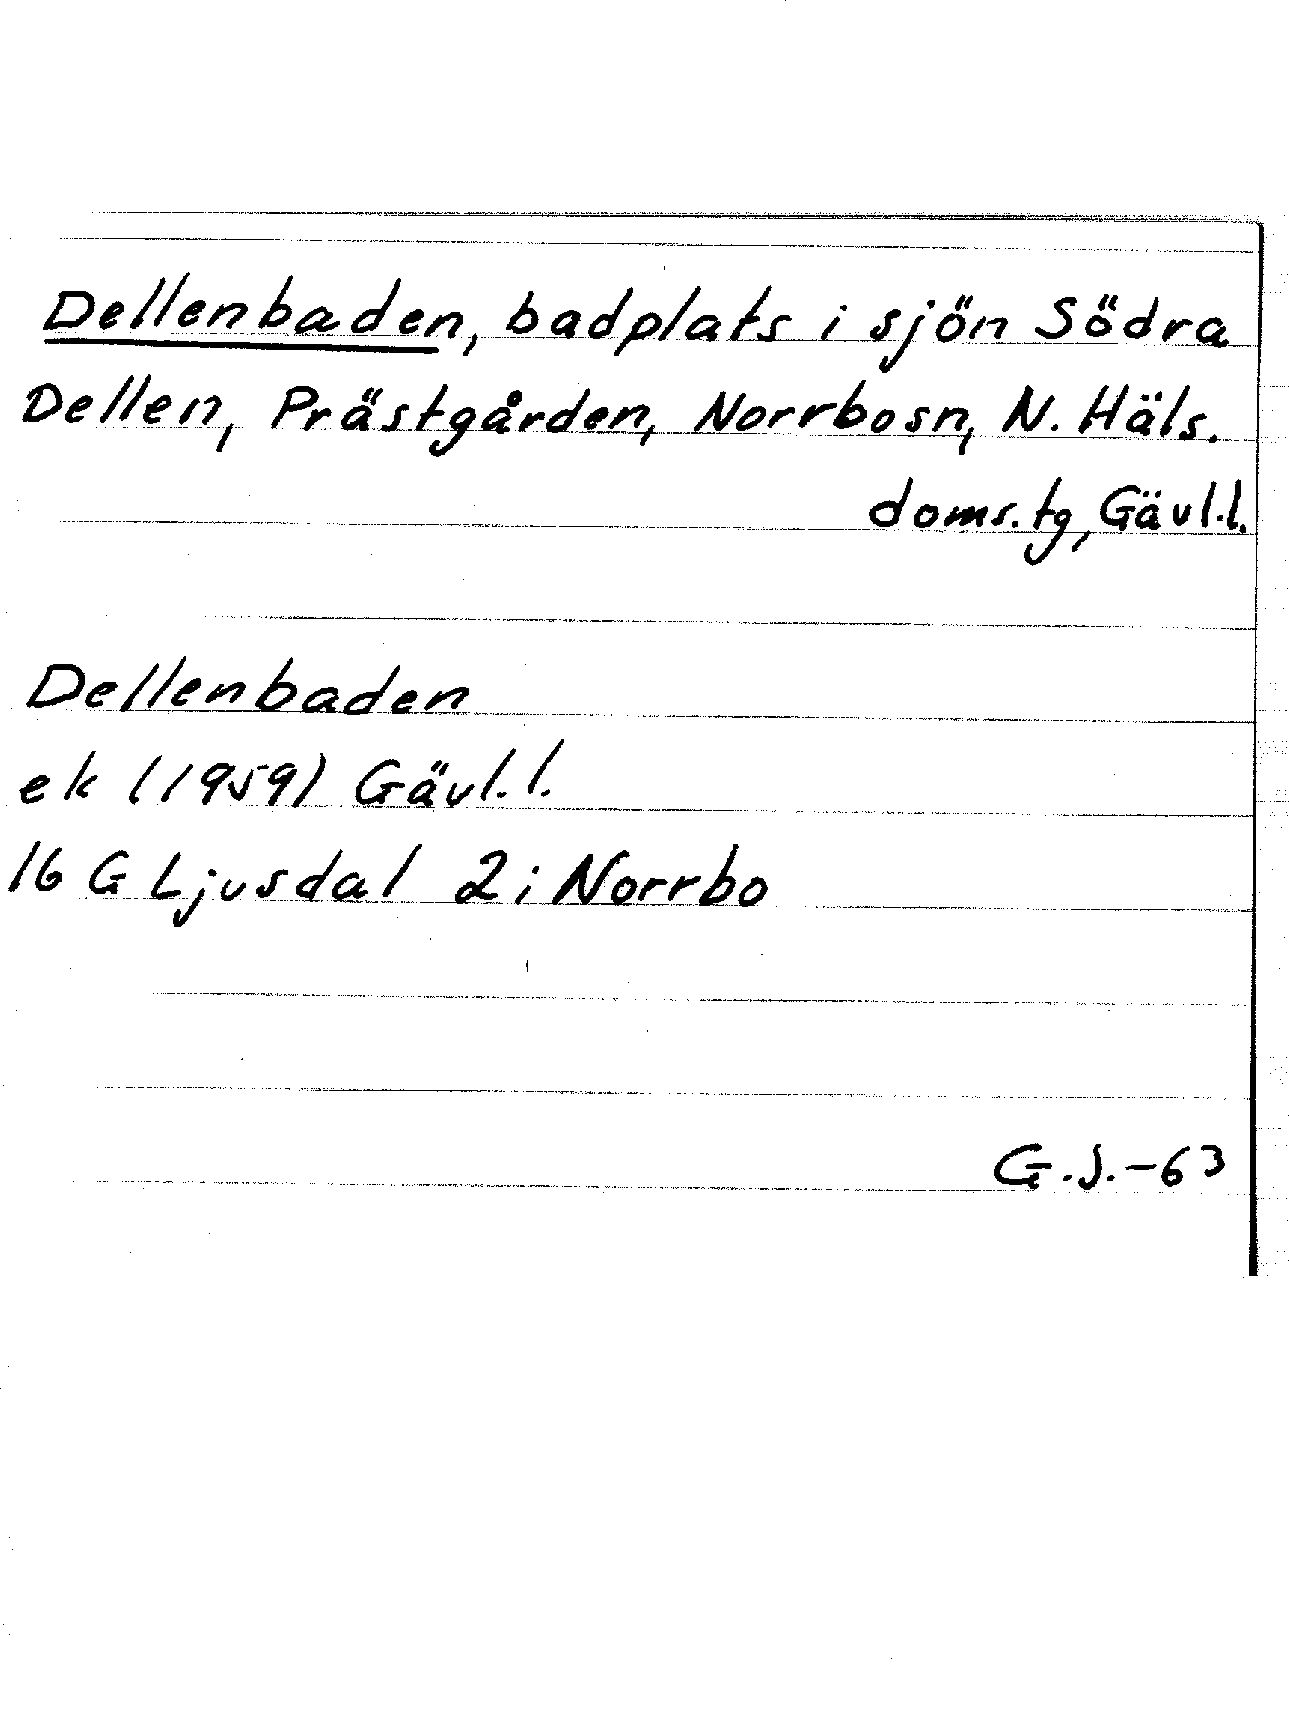 Dellenbaden, badplats i sjön Södra
Dellen, Prästgården, Norrbosn, N. Häls.
doms.tg, Gävl.l.
Dellenbaden
ek (1959) Gävl.l.
16 G Ljusdal 2i Norrbo
G.J.-63